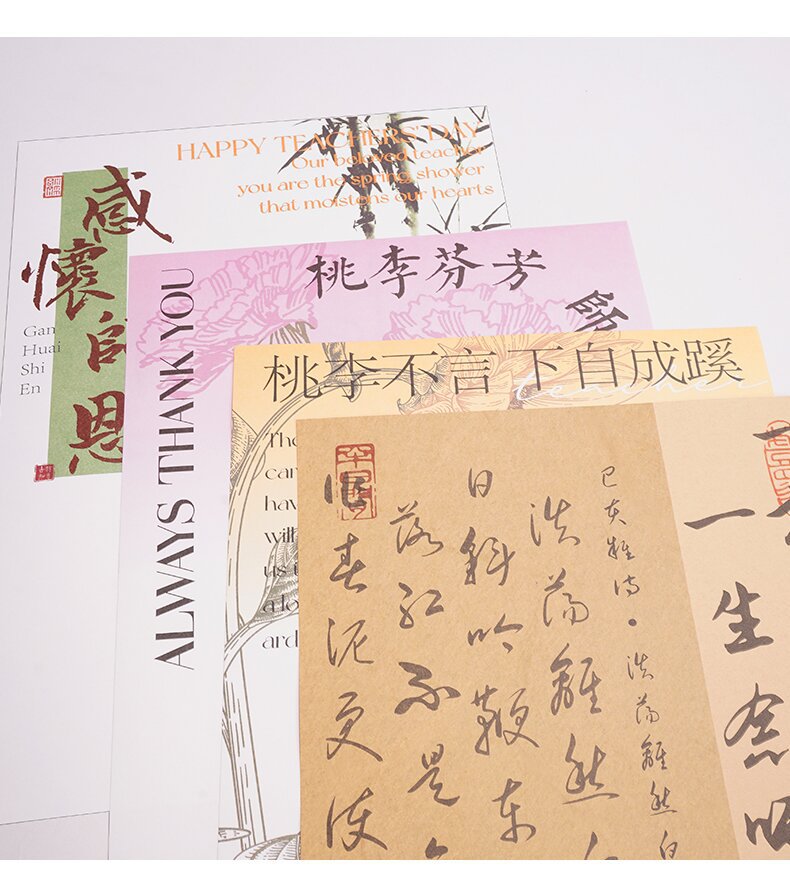 HAPPY TEACHERS' DAY
Our beloved teacher
you are the spring shower
that moistens our hearts
感懷師恩
Gan
Huai
Shi
En
桃李芬芳
師
ALWAYS THANK YOU
桃李不言 下自成蹊
teacher
The
can
hav
will
us t
a lo
ard
己亥雜诗·浩蕩離愁白
浩蕩離愁
日斜吟鞭东
落红不是
春泥更
一生念